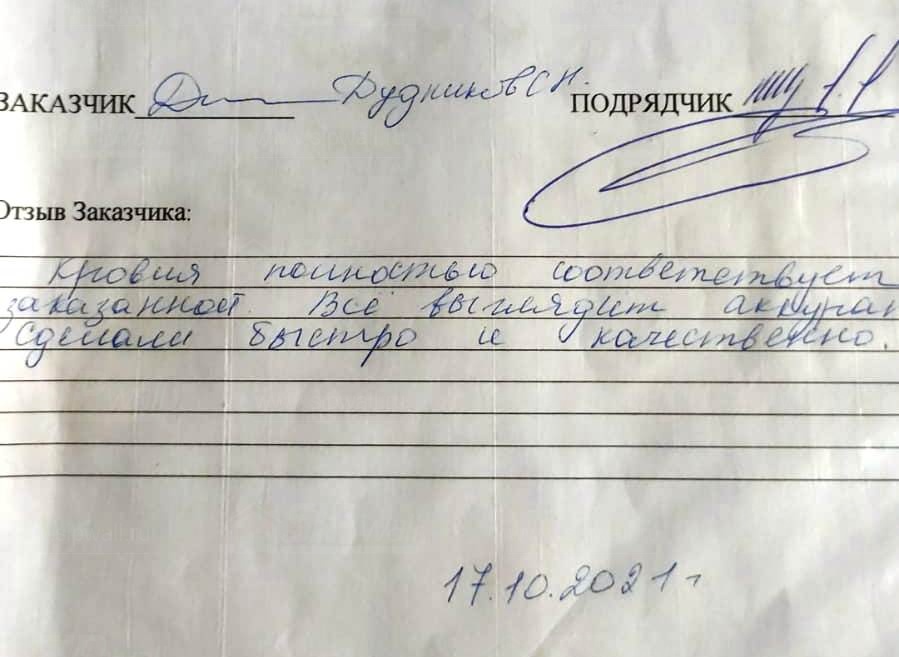 ЗАКАЗЧИК Дудников С Н. ПОДРЯДЧИК
Отзыв Заказчика:
Кровля полностью соответствует
заказанной. Всё выглядит аккурат
Сделали быстро и качественно.
17.10.2021 г